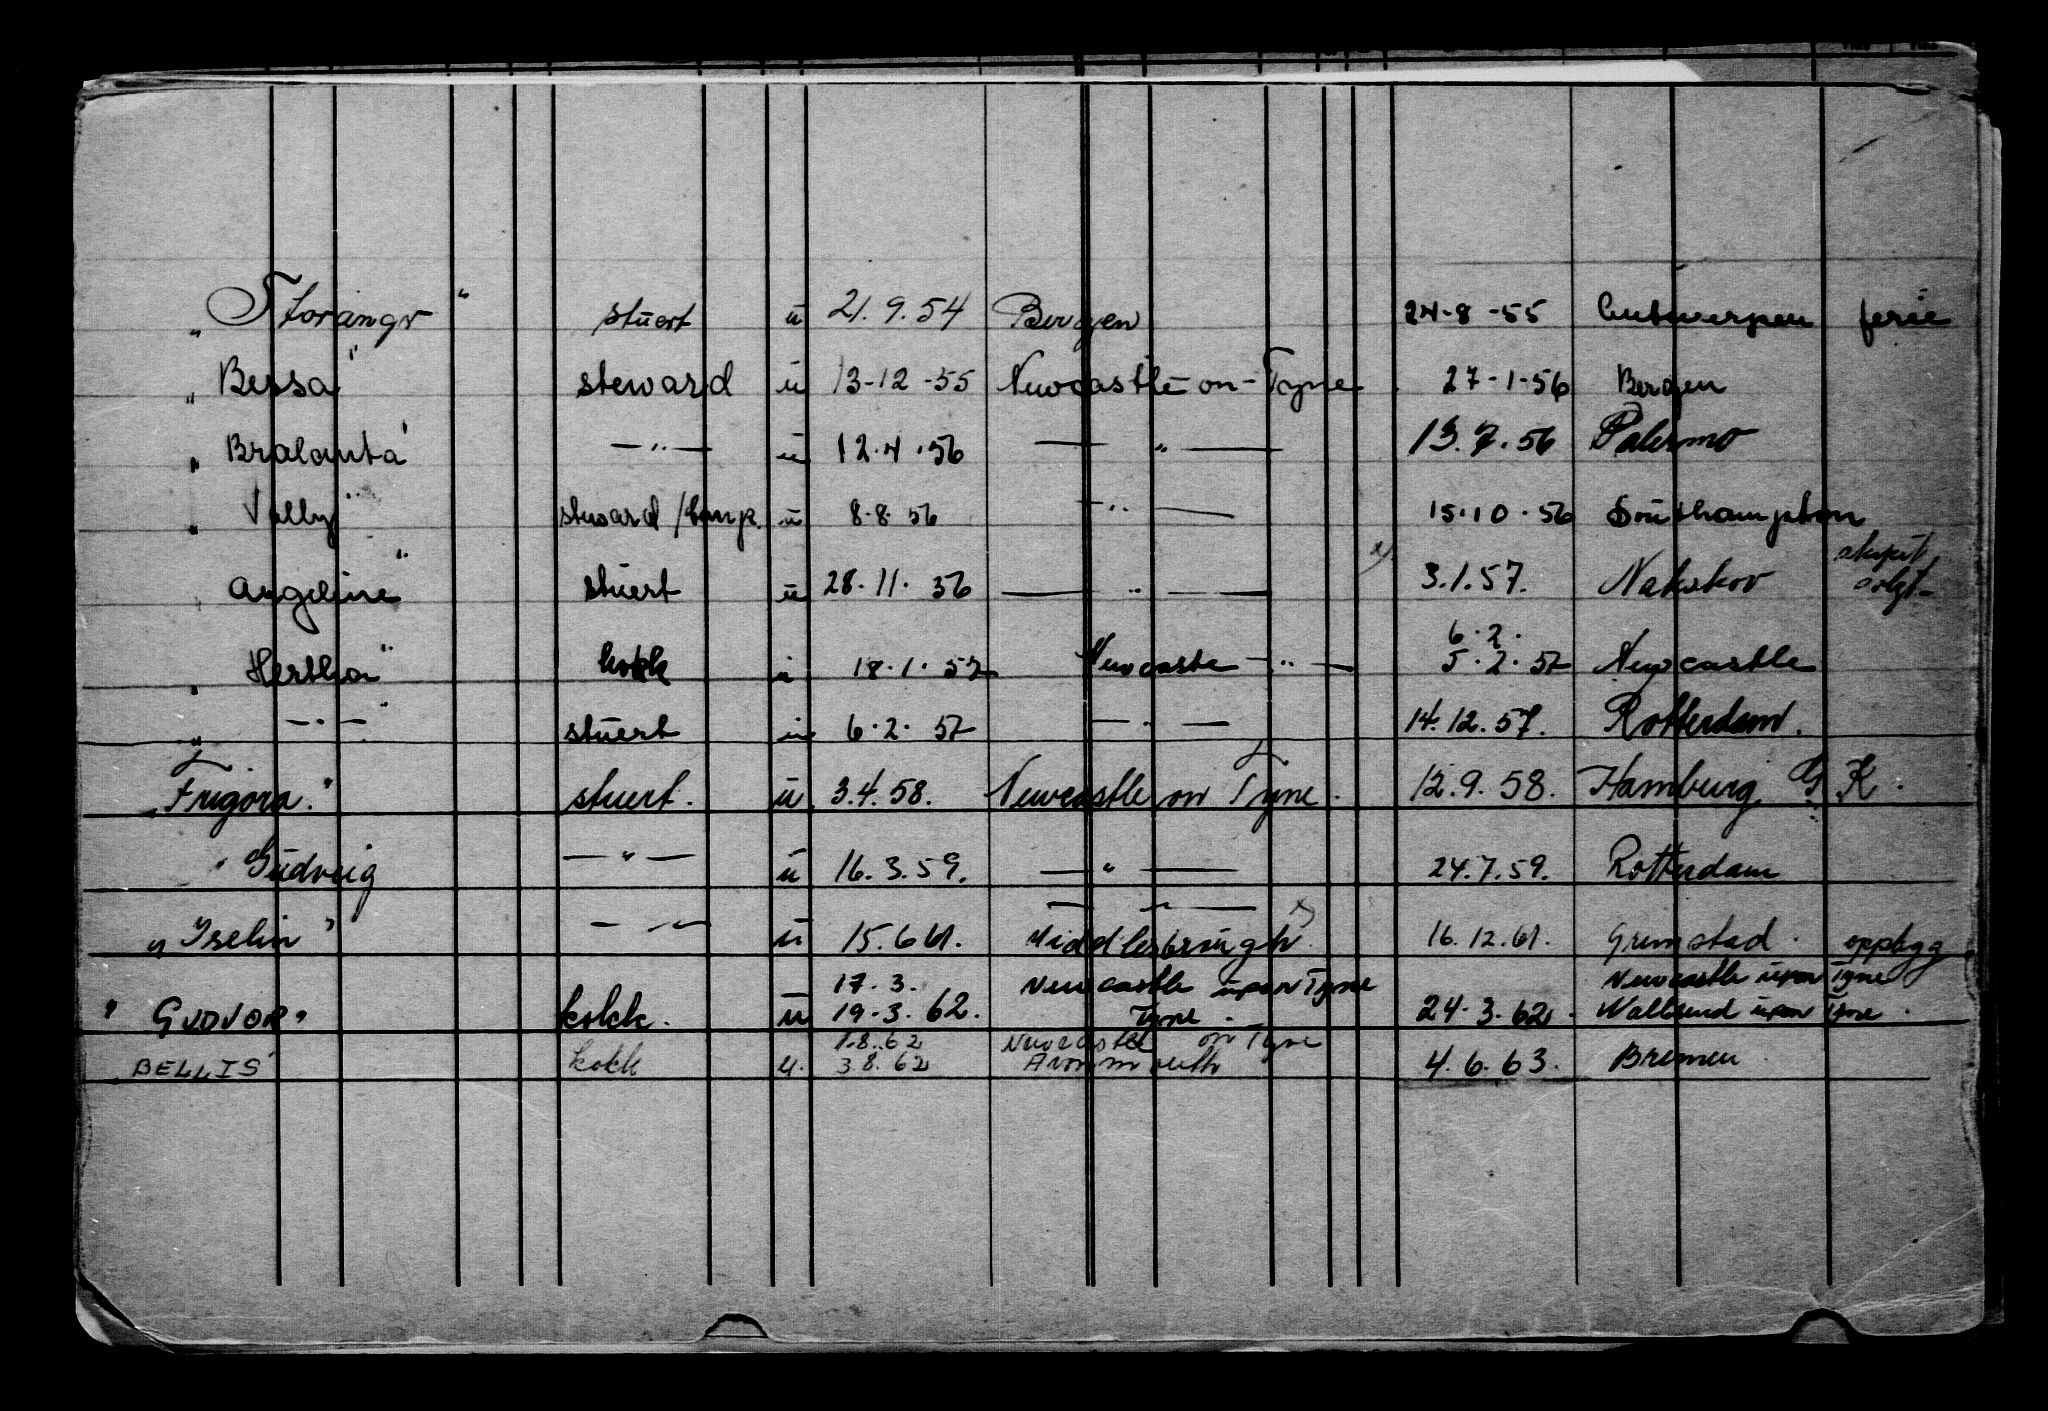 „ Storanger “ stuert u 21.9.54 Bergen 24-8-55 Antwerpen ferie
„ Bessa “ steward u 13-12-55 Newcastle-on-Tyne 27-1-56 Bergen
„ Bralanta “ — „ — u 12.4.56 — „ — 13.7.56 Palermo
„ Vally “ steward / u 8.8.56 — „ — 15.10.56 Southampton
„ Angeline “ stuert u 28.11.56 — „ — x) 3.1.57. Nakskov skipet solgt
„ Hertha “ kokk u 18.1.57 Newcastle — „ — 6.2. 5.2.57 Newcastle
„ — „ — “ stuert u 6.2.57 — „ — 14.12.57. Rotterdam.
„ Frigora. “ stuert. u 3.4.58. Newcastle on Tyne. 12.9.58. Hamburg G K.
„ Gudveig — „ — u 16.3.59. — „ — 24.7.59. Rotterdam
— „ —
„ Iselin “ — „ — u 15.6.61. Middlesbrough x) 16.12.61. Grimstad. oppbygg
17.3. Newcastle upon Tyne Newcastle upon Tyne
" GUDVOR " kokk. u 19.3.62. Tyne. 24.3.62. Wallsend upon Tyne.
1.8.62 Newcastle on Tyne
BELLIS kokk u. 3.8.62 Avonmouth 4.6.63. Bremen